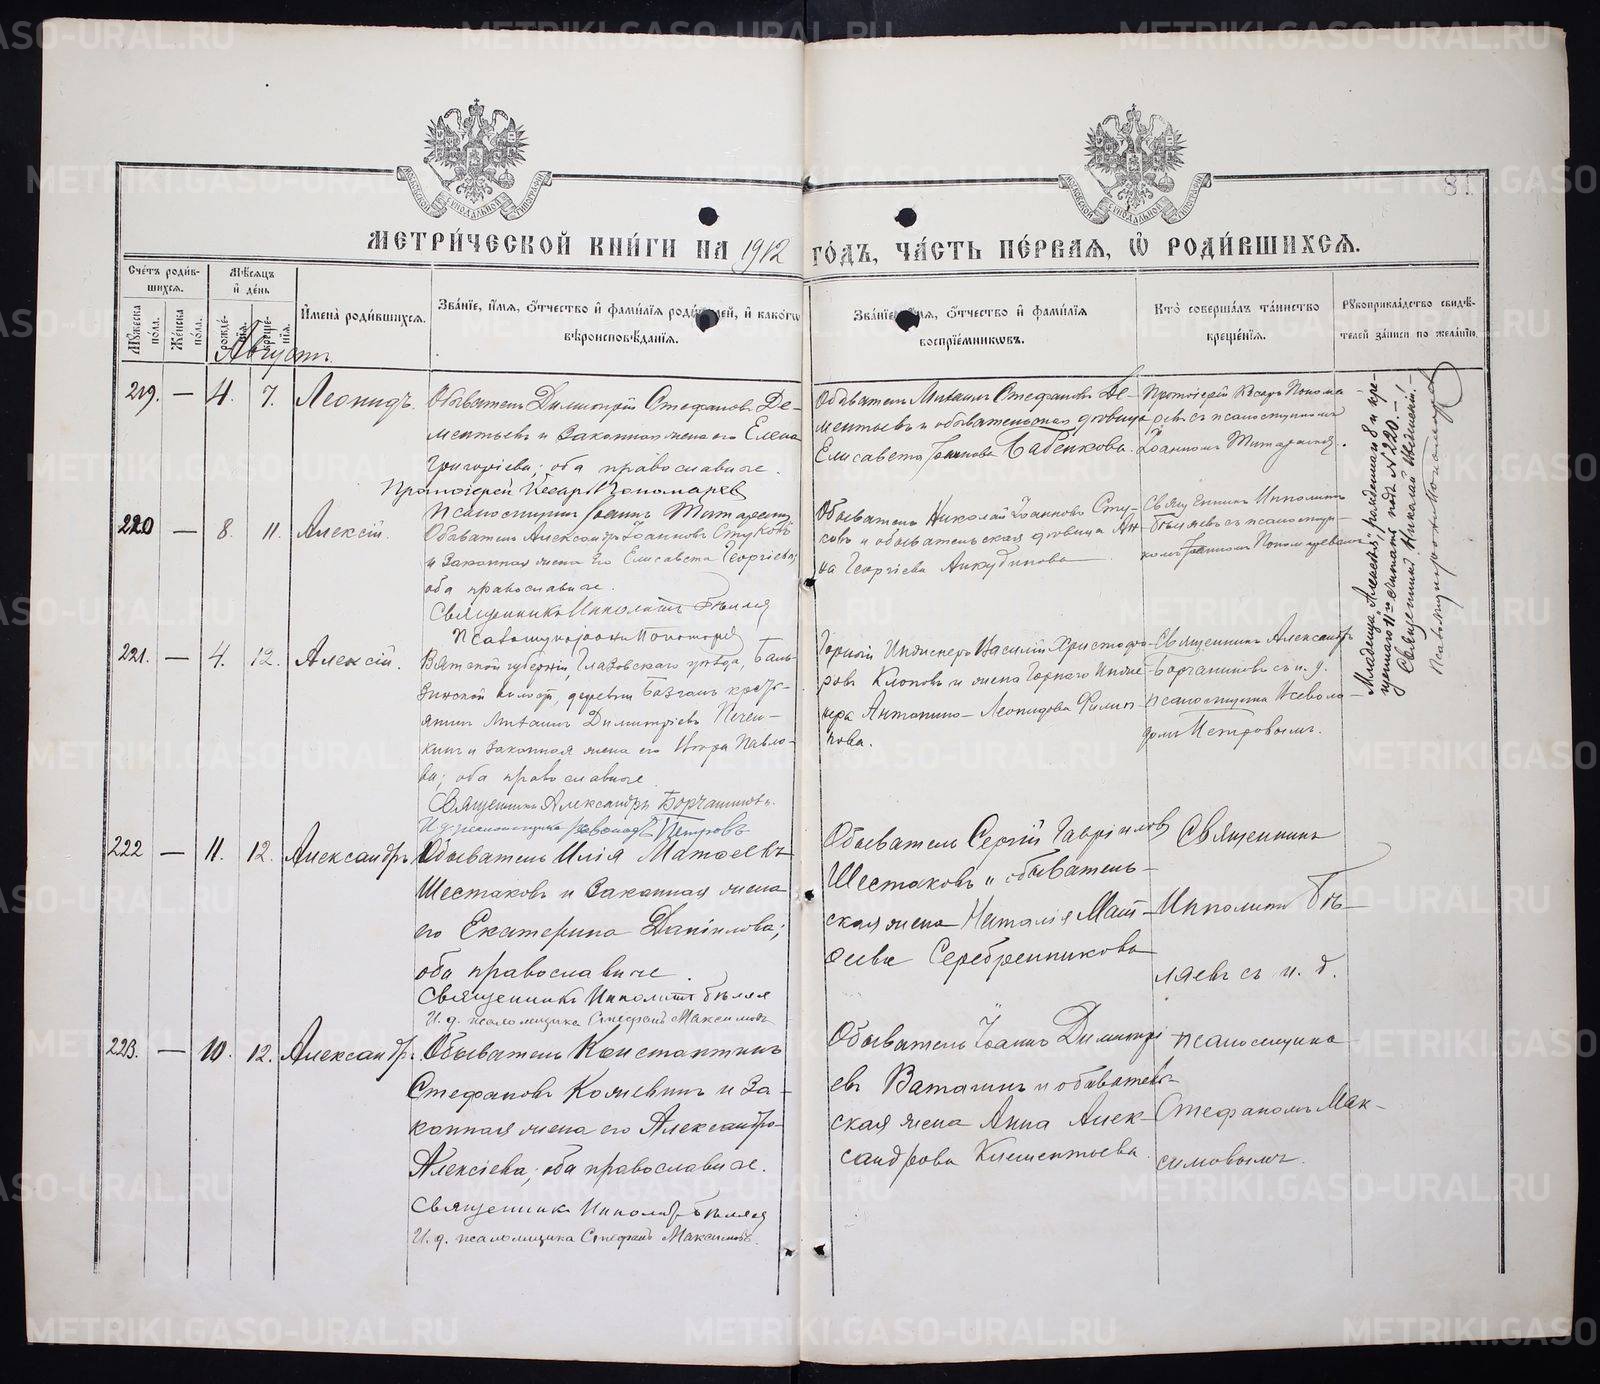 81.
МЕТРИ́ЧЕСКОЙ КНИ́ГИ НА 1912 ГО́ДЪ, ЧА́СТЬ ПЕ́РВАѦ, Ѡ҆ РОДИ́ВШИХСѦ.
Сче́тъ роди́в-
шихсѧ.
Мꙋ́жеска по́ла.
Же́нска по́ла.
Мѣ́сѧцъ
и҆ де́нь
рожде́нїѧ.
креще́нїѧ.
И҆мена̀ роди́вшихсѧ.
Зва́нїе, и҆́мѧ, ѻ҆́тчество и҆ фами́лїѧ роди́телей, и҆ како́гѡ
вѣроисповѣ́данїѧ.
Зва́нїе, и҆́мѧ, ѻ҆́тчество и҆ фами́лїѧ
воспрїе́мникѡвъ.
Кто̀ соверша́лъ та́инство
креще́нїѧ.
Рꙋкоприкла́дство свидѣ́-
телей за́писи по жела́нїю.
Августъ.
219. — 4. 7. Леонидъ.
Обыватель Димитрій Стефановъ Де-
ментьевъ и законная жена его Елена
Григоріева; оба православные.
Протоіерей Кесарь Пономаревъ
Псаломщикъ Іоаннъ
Обыватель Михаилъ Стефановъ Де-
ментьевъ и обывательская дѣвица
Елисавета Іоаннова Бабенкова.
Протоіерей Кесарь Понома-
ревъ съ псаломщикомъ
Іоанномъ
220 — 8. 11. Алексій.
Обыватель Александръ Іоанновъ Стуковъ
и законная жена его Елисавета Георгіева;
оба православные.
Священникъ Ипполитъ Бѣляев
Псаломщикъ Іоаннъ Пономарев
Обыватель Николай Іоанновъ Сту-
ковъ и обывательская дѣвица Ан-
на Георгіева Анкудинова
Священникъ Ипполитъ
Бѣляевъ съ псаломщи-
комъ Іоанномъ Пономаревымъ
221. — 4. 12. Алексій.
Вятской губерніи, Глазовскаго уѣзда, Баль-
зинской волости, деревни кресть-
янинъ Михаилъ Димитріевъ
и законная жена его Павло-
ва; оба православные
Священникъ Александръ Борчаниновъ.
И. д. псаломщика Всеволодъ Петровъ
Горный Инженеръ Василій Христофо-
ровъ Клоповъ и жена Горнаго Инже-
нера Антонина Леонидова Филип-
пова.
Священникъ Александръ
Борчаниновъ съ и. д.
псаломщика Всеволо-
домъ Петровымъ.
222 — 11. 12. Александръ
Обыватель Илія Матѳеевъ
Шестаковъ и законная жена
его Екатерина Даніилова;
оба православные.
Священникъ Ипполитъ Бѣляев
И. д. псаломщика Стефанъ Максимовъ
Обыватель Сергій Гавріиловъ
Шестаковъ и обыватель-
ская жена Наталія Мат-
ѳеева Серебренникова
Священникъ
Ипполитъ Бѣ-
ляевъ съ и. д.
223. — 10. 12. Александръ.
Обыватель Константинъ
Стефановъ Кожевинъ и за-
конная жена его Александра
Алексіева; оба православные.
Священникъ Ипполитъ Бѣляев
И. д. псаломщика Стефанъ Максимовъ.
Обыватель Іоаннъ Димитрі-
евъ Ватагинъ и обыватель-
ская жена Анна Алек-
сандрова Клементьева
псаломщика
Стефаномъ Мак-
симовымъ.
Младенца „Алексѣя“, рожденнаго 8 и кре-
щеннаго 11 считать подъ № 220.—!
Священникъ Николай